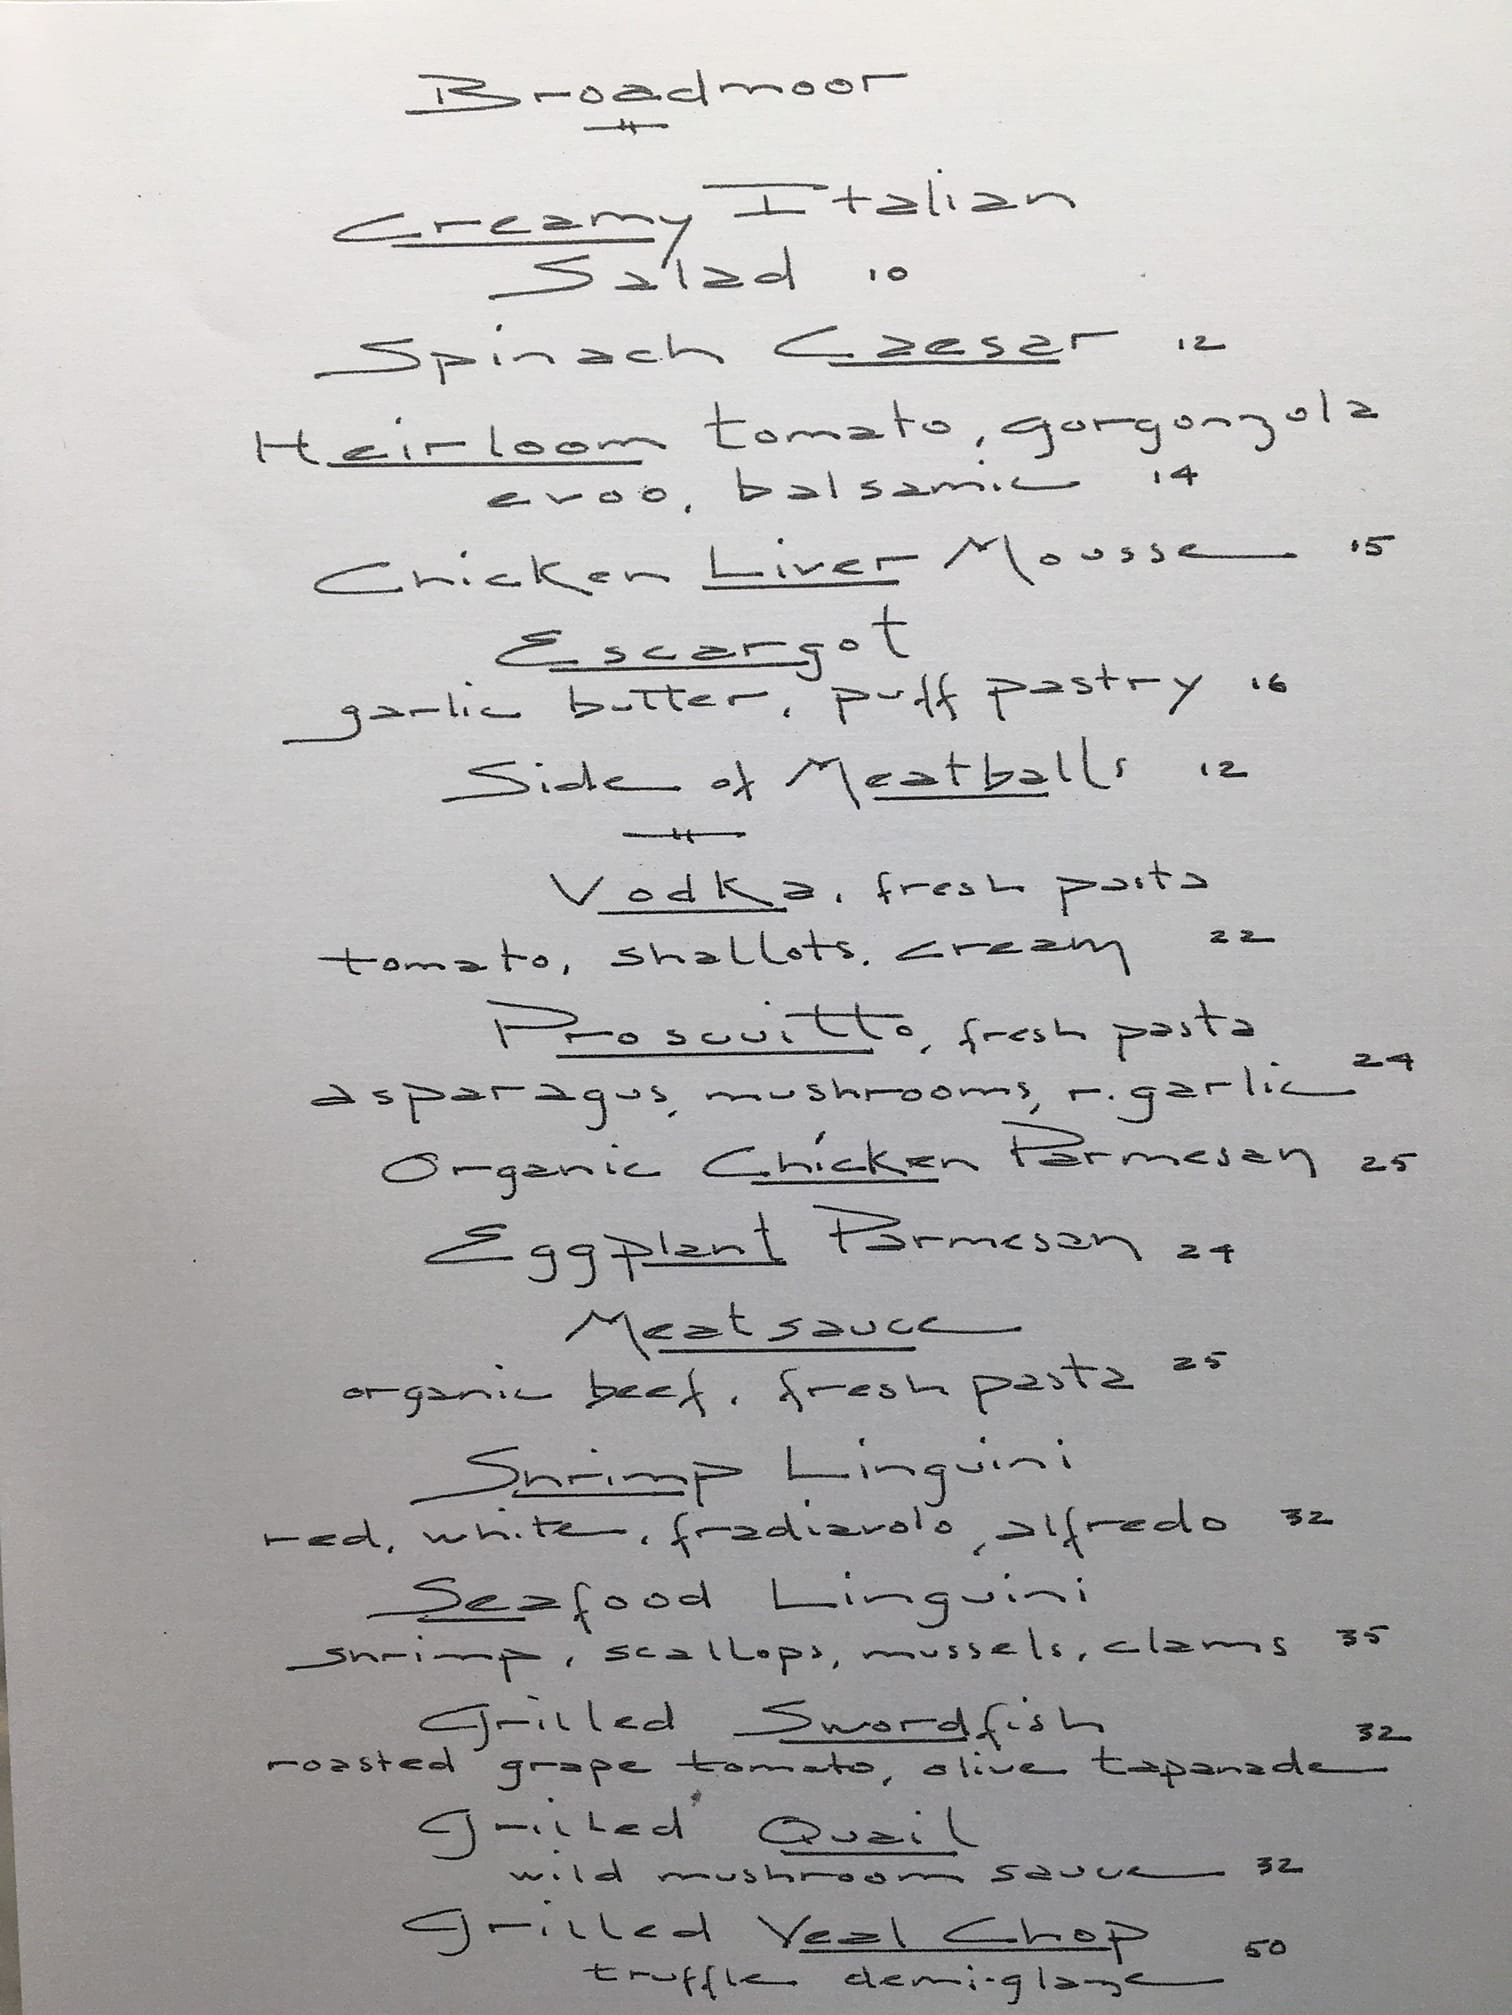 Broadmoor
Creamy Italian
Salad 10
Spinach Caesar 12
Heirloom tomato, gorgonzola
evoo, balsamic 14
Chicken Liver Mousse 15
Escargot
garlic butter, puff pastry 16
Side of Meatballs 12
Vodka, fresh pasta
tomato, shallots, cream 22
Proscuitto, fresh pasta
asparagus, mushrooms, r. garlic 24
Organic Chicken Parmesan 25
Eggplant Parmesan 24
Meatsauce
organic beef, fresh pasta 25
Shrimp Linguini
red, white, fradiavolo, alfredo 32
Seafood Linguini
shrimp, scallops, mussels, clams 35
Grilled Swordfish
roasted grape tomato, olive tapanade 32
Grilled Quail
wild mushroom sauce 32
Grilled Veal Chop
truffle demi-glaze 50